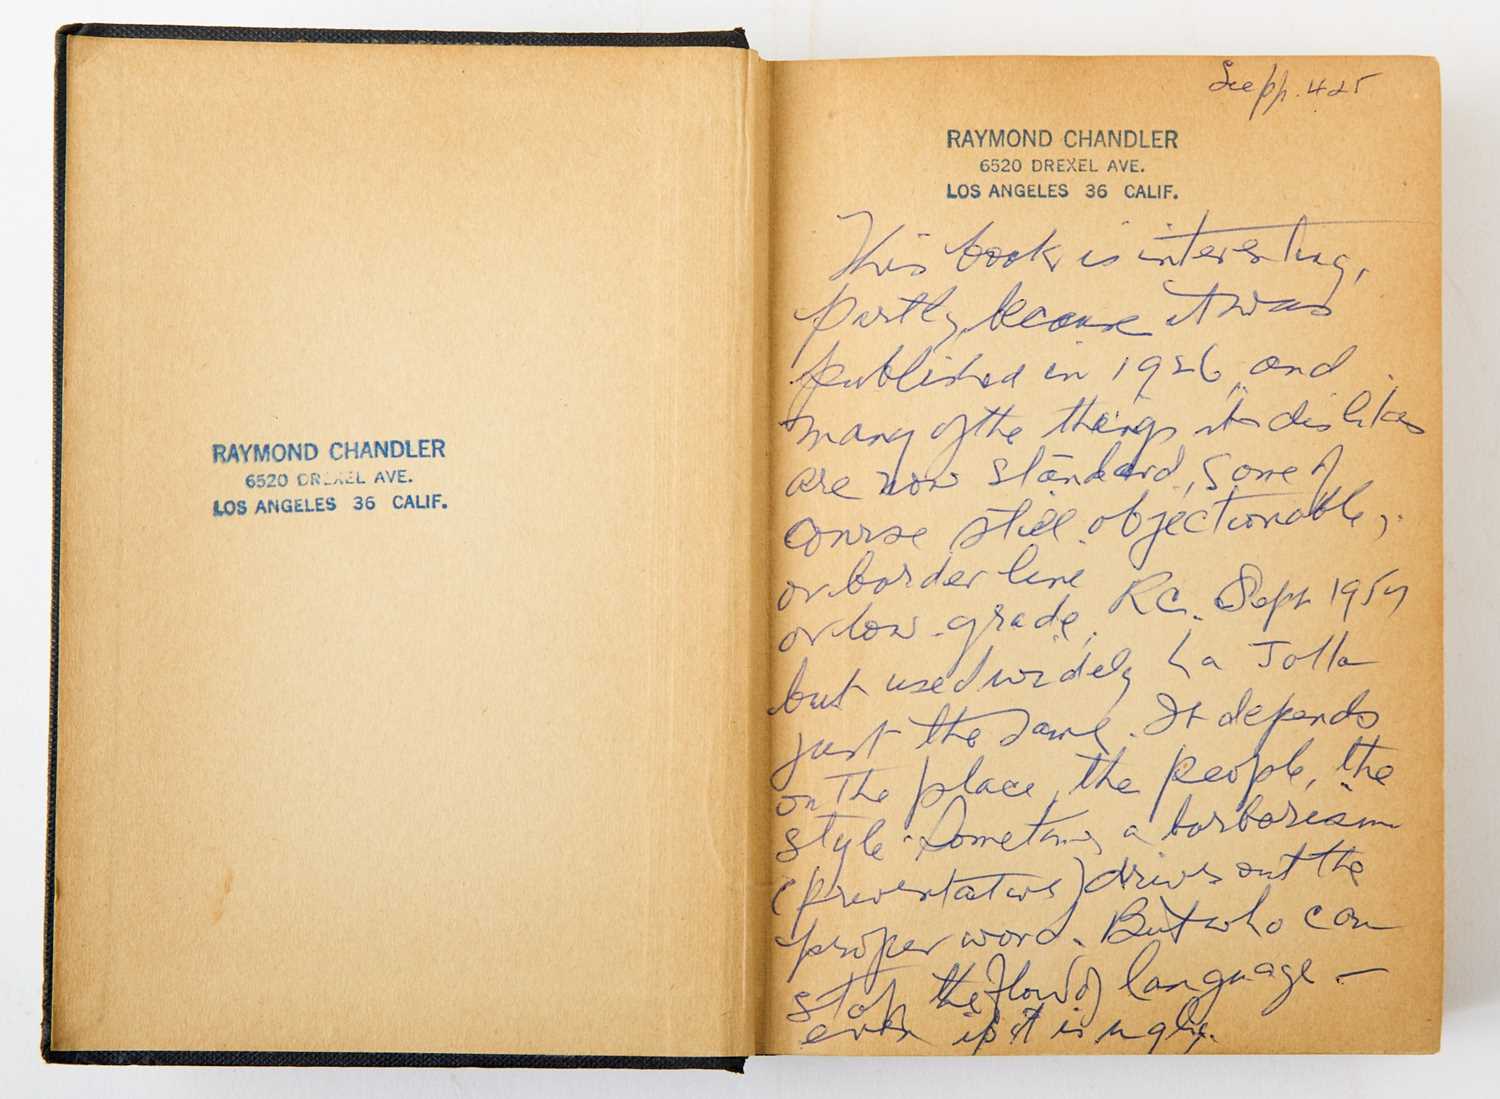 RAYMOND CHANDLER
6520 DREXEL AVE.
LOS ANGELES 36 CALIF.
See pp. 425
RAYMOND CHANDLER
6520 DREXEL AVE.
LOS ANGELES 36 CALIF.
This book is interesting,
partly because it was
published in 1926 and
many of the things it dislikes
are now standard, some of
course still objectionable,
or border line
or low-grade, RC. Sept 1957
but used widely La Jolla
just the same. It depends
on the place, the people, the
style. Sometimes a barbarism
(preventative) drives out the
proper word. But who can
stop the flow of language —
even if it is ugly.